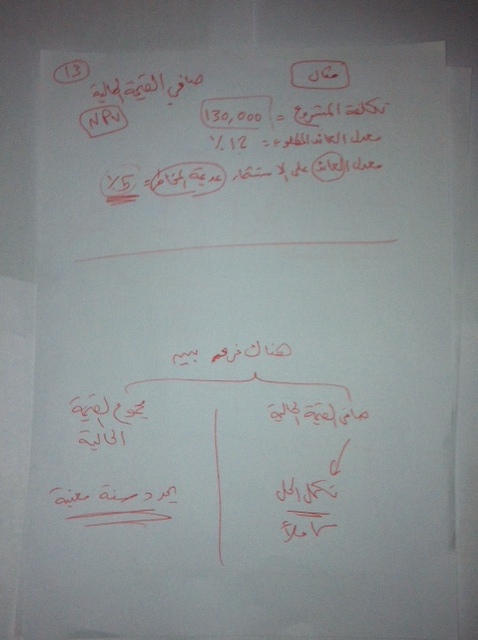 13
مثال
صافي القيمة الحالية
NPV
تكلفة المشروع = 130,000
معدل العائد المطلوب = 12 %
معدل العائد على الاستثمار عديمة المخاطر = 5 %
هناك فرق بين
صافي القيمة الحالية
تكمل الحل
كاملاً
مجموع القيمة
الحالية
يحدد سنة معينة